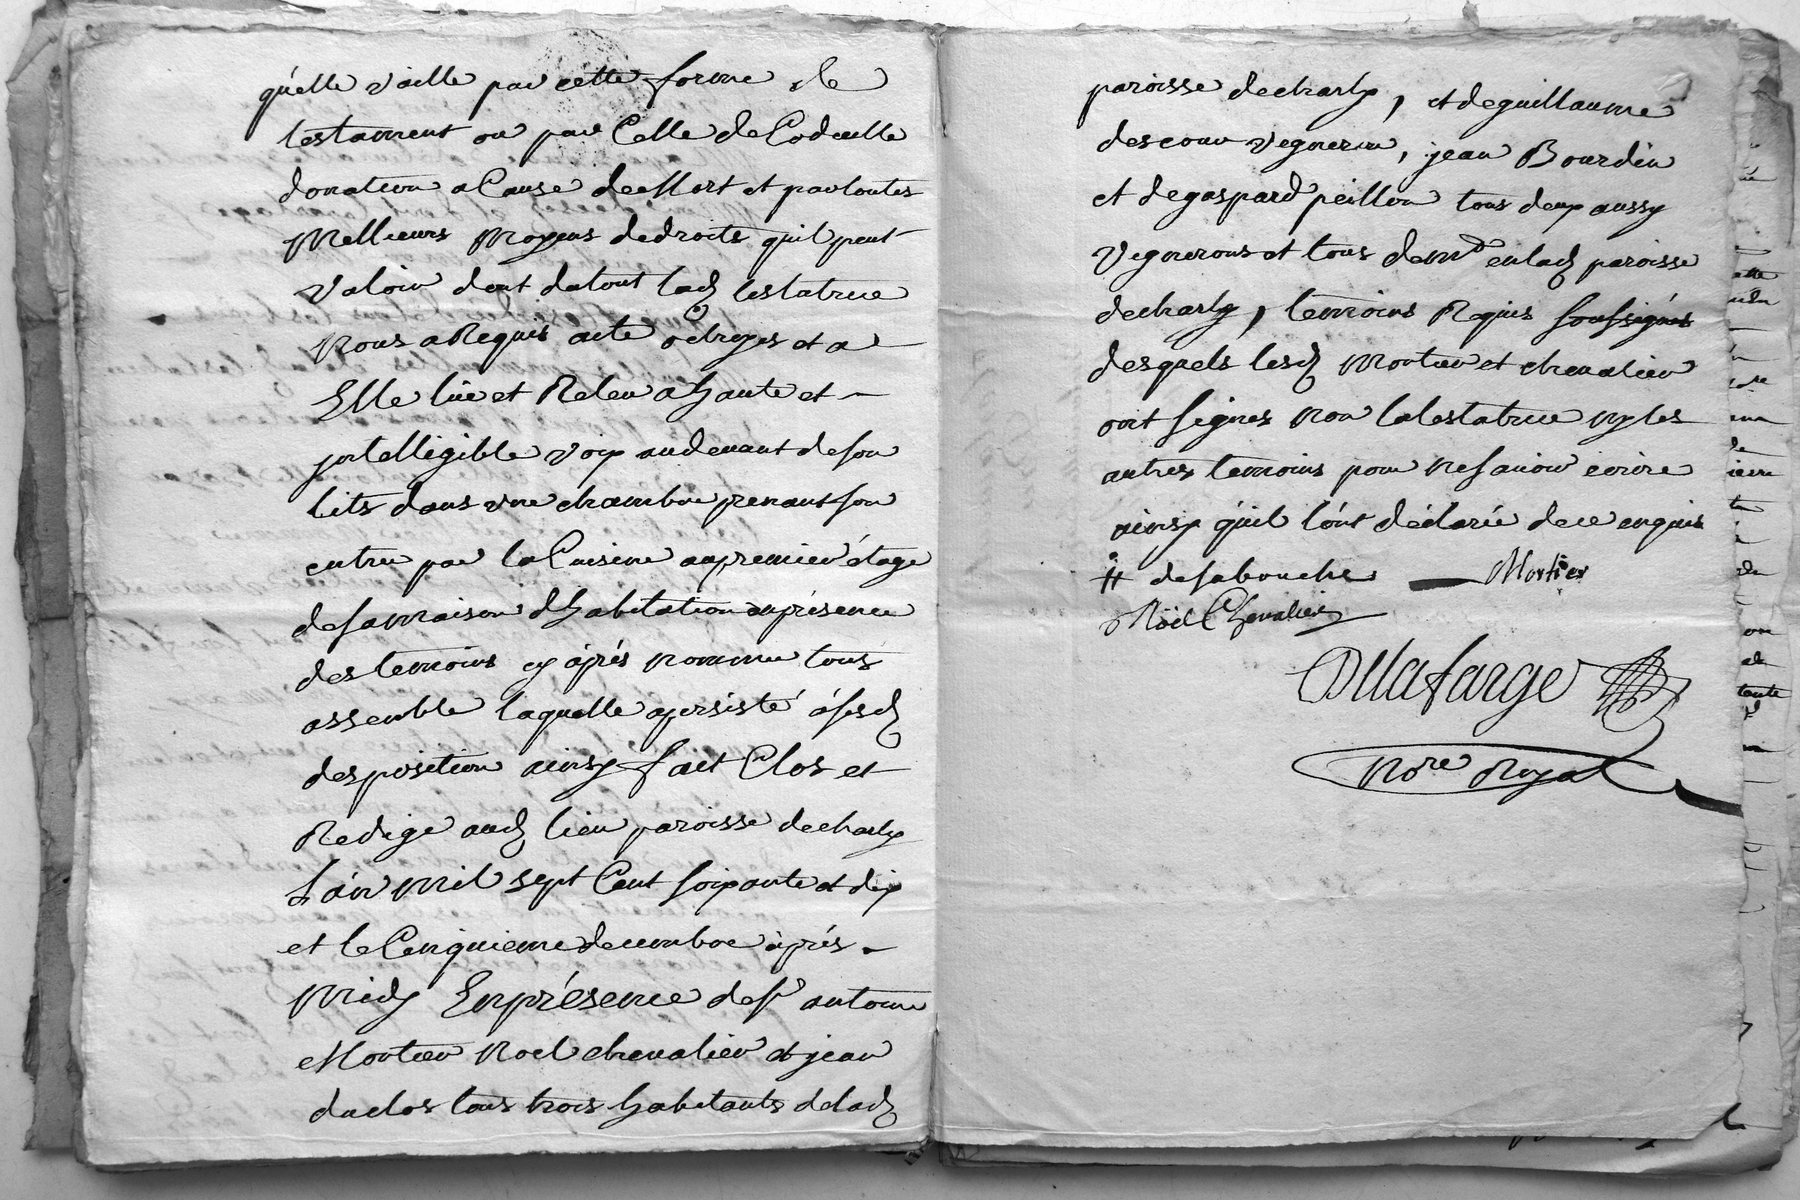 qu'elle vaille par cette forme de
testament ou par Celle de Codicille
donation a Cause de Mort et par toutes
Mellieurs Moyens de droits quil peut
Valoir dont du tout lad testatrice
Nous a Requis acte octroyes et a
Elle lüe et Releu a haute et
jntelligible voix au devant de son
lits dans une chambre prenant son
entree par la Cuisine au premier étage
de sa maison d'habitation en présence
des temoins cy aprés nommee tous
assemble laquelle a persisté à sesd
desposition ainsy fait Clos et
Redige aud lieu paroisse de charly
L'an mil sept Cent soixante et dix
et le Cinquieme decembre àprés
Midy En présence de Sr antoine
Mortier Noel chevalier et jean
duclos tous trois habitants delad
paroisse de charly, et de guillaume
descour vigneron, jean Bourdin
et de gaspard peillon tous deux aussy
Vignerons et tous demts en lad paroisse
de charly, temoins Requis soussignés
desquels lesd Mortier et chevalier
ont signes non la testatrice ny les
autres temoins pour ne savoir écrire
ainsy qu'il l'ont déclarée de ce enquis
# de sa bouche Mortier
Nöel Chevalier
Dllafarge
Nore Royal